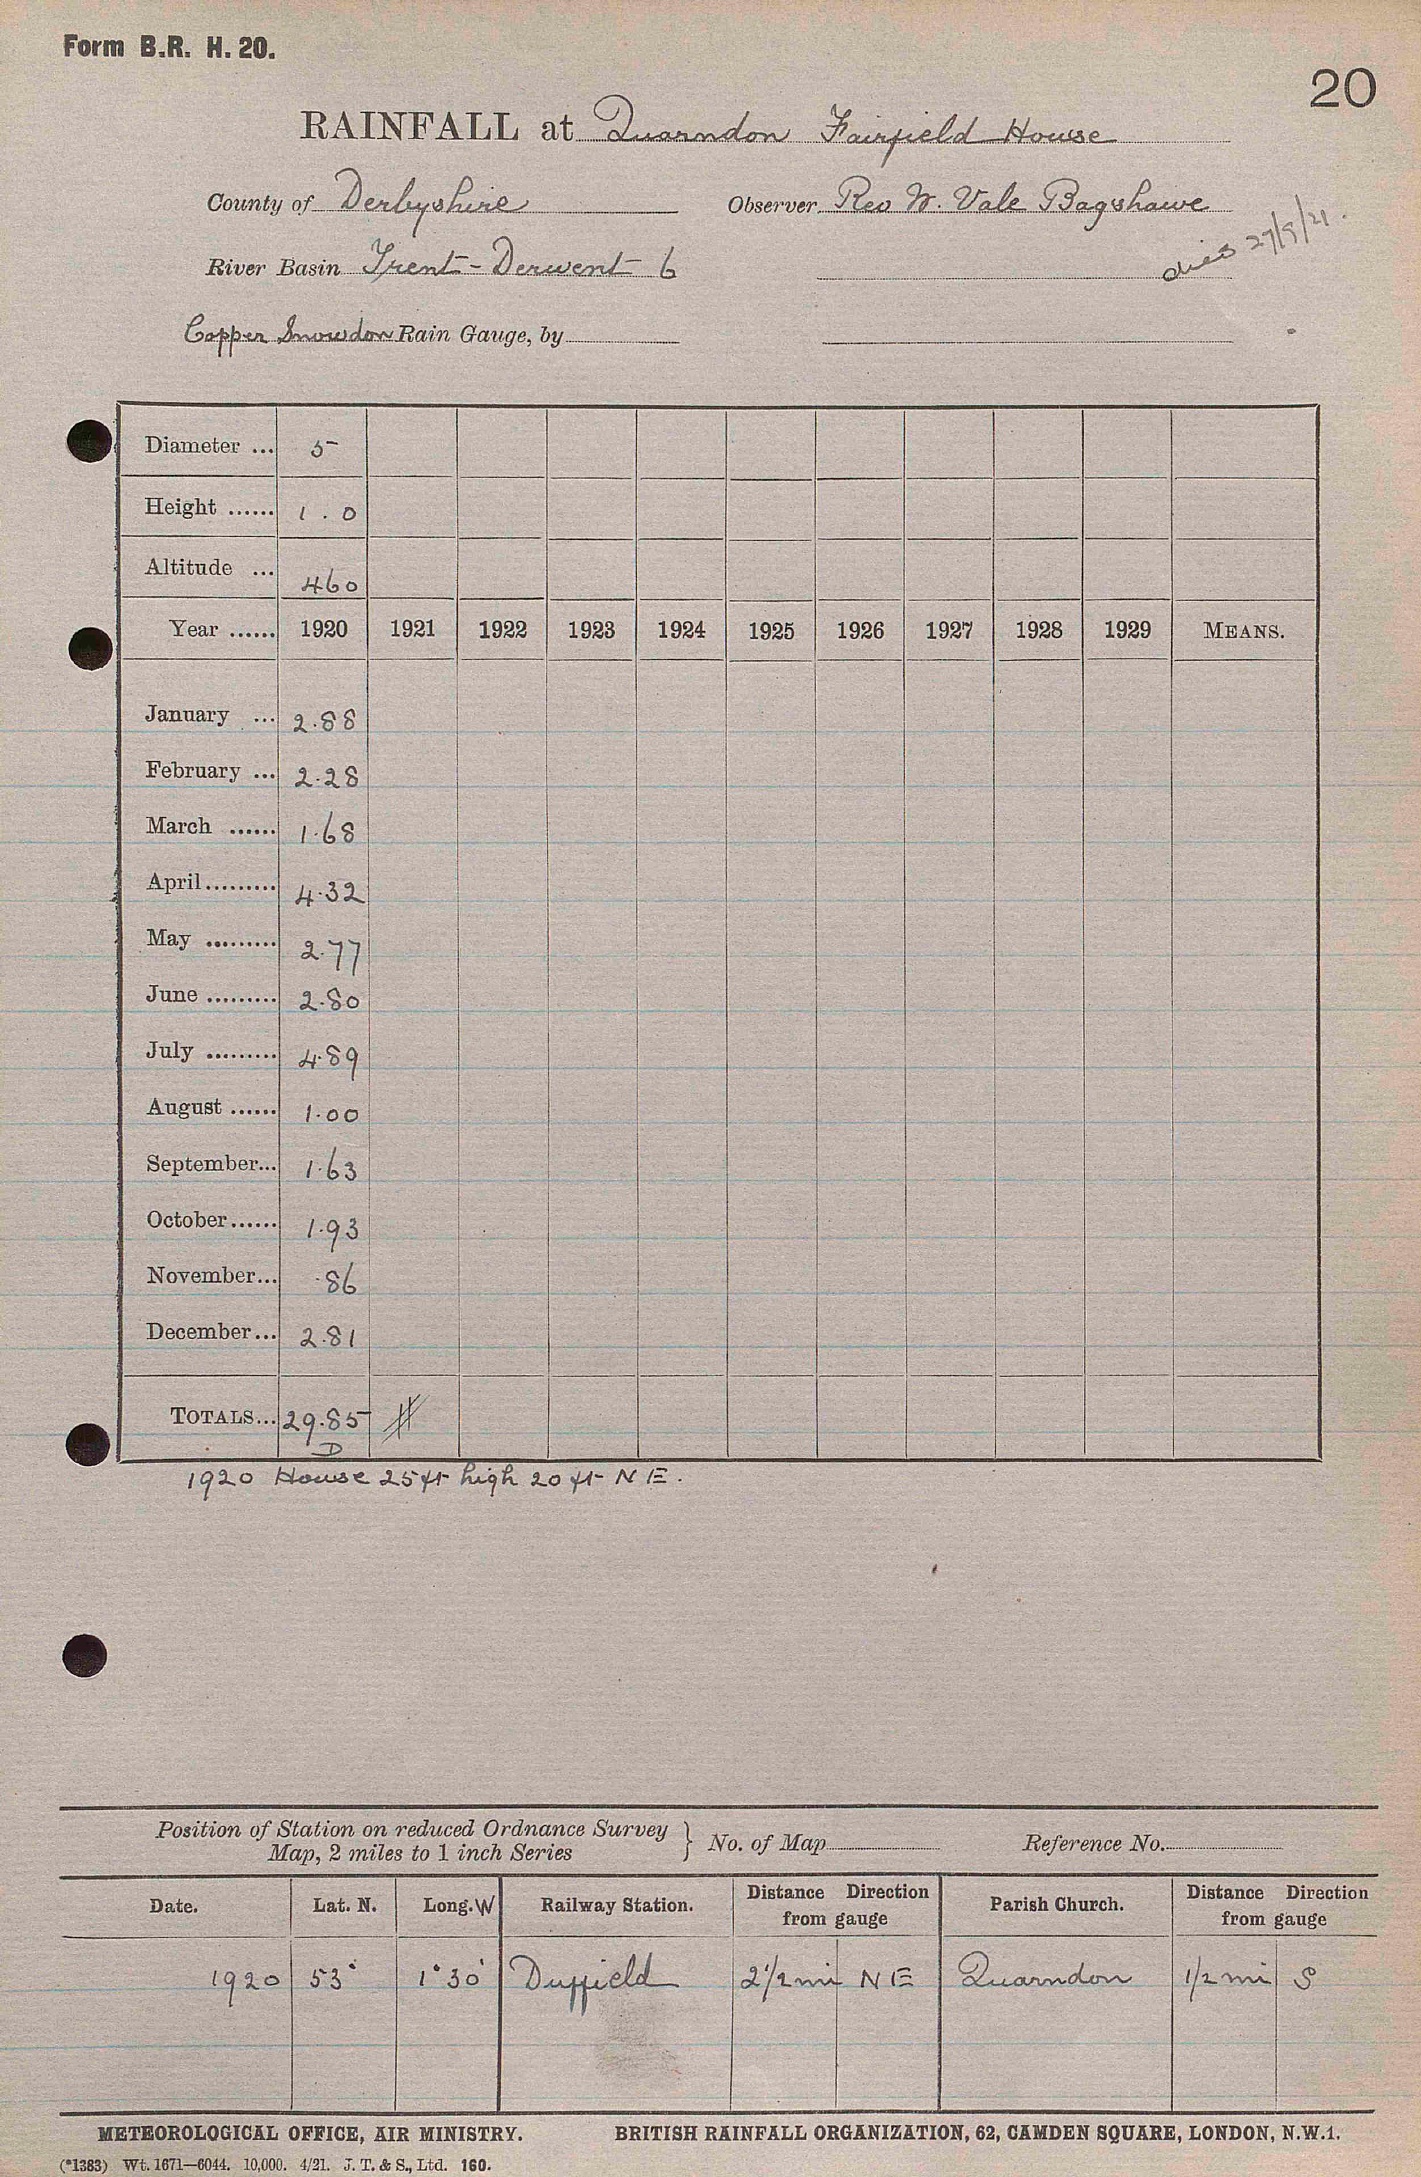 Form B.R. H. 20.
20
RAINFALL at Quarndon Fairfield House
County of Derbyshire Observer Rev W. Vale Bagshawe
died 27/5/21.
River Basin Trent-Derwent 6
Copper Snowdon Rain Gauge, by
Diameter ... 5
Height ...... 1 . 0
Altitude ... 460
Year ...... 1920 1921 1922 1923 1924 1925 1926 1927 1928 1929 MEANS.
January ... 2.88
February ... 2.28
March ...... 1.68
April ......... 4.32
May ......... 2.77
June ......... 2.80
July ......... 4.89
August ...... 1.00
September... 1.63
October...... 1.93
November... .86
December... 2.81
TOTALS... 29.85
D
1920 House 25 ft high 20 ft N E.
Position of Station on reduced Ordnance Survey Map, 2 miles to 1 inch Series } No. of Map Reference No.
Date. Lat. N. Long. W Railway Station. Distance Direction from gauge Parish Church. Distance Direction from gauge
1920 53° 1°30' Duffield 2 1/2 mi N E Quarndon 1/2 mi S
METEOROLOGICAL OFFICE, AIR MINISTRY. BRITISH RAINFALL ORGANIZATION, 62, CAMDEN SQUARE, LONDON, N.W.1.
(*1383) Wt. 1671—6044. 10,000. 4/21. J. T. & S., Ltd. 160.